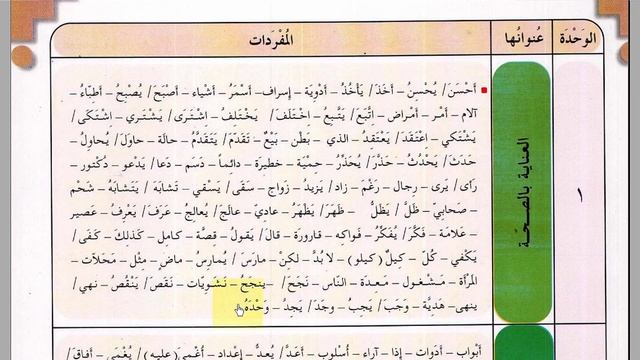 الوَحْدَة عُنوانُها المُفْرَدَات
١
العناية بالصحّة
أَحْسَنَ/ يُحْسِنُ – أَخَذَ/ يَأْخُذُ – أَدْوِيَة – إسراف – أَسْمَرُ – أشْياء – أَصْبَحَ/ يُصْبِحُ – أَطِبّاءُ –
آلام – أمْر – أمْراض – اتَّبَعَ/ يَتَّبِعُ – اخْتَلَفَ/ يَخْتَلِفُ – اشْتَرى/ يَشْتَري – اشْتَكى/
يَشْتَكي – اعْتَقَدَ/ يَعْتَقِدُ – الذي – بَطْن – بَيْعٌ – تَقَدَّمَ/ يَتَقَدَّمُ – حالَة – حاوَلَ/ يُحاوِلُ –
حَدَثَ/ يَحْدُثُ – حَذَّرَ/ يُحَذِّرُ – حِمْيَة – خطيرَة – دائِماً – دَسَم – دَعا/ يَدعو – دُكتور –
رَأى/ يَرى – رِجال – رَغْمَ – زاد/ يَزيدُ – زَواج – سَقى/ يَسْقي – تَشابَهَ/ يَتَشابَهُ – شَحْم
– صَحابي – ظَلَّ/ يَظَلُّ – ظَهَرَ/ يَظْهَرُ – عاديّ – عالَجَ/ يُعالِجُ – عَرَفَ/ يَعْرِفُ – عَصير
– عَلامَة – فَكَّرَ/ يُفَكِّرُ – فَواكِه – قارورَة – قالَ/ يَقولُ – قِصَّة – كامِل – كَذلِكَ – كَفى/
يَكْفي – كُلّ – كيلُ (كيلو) – لا بُدَّ – لكِنْ – مارَسَ/ يُمارِسُ – ماضٍ – مِثْل – مَحَلاّت –
المرْأة – مَشْغول – مَعِدَة – النّاس – نَجَحَ/ – يَنجَحُ – نَشَوِيّات – نَقَصَ/ يَنْقُصُ – نهى/
ينهى – هَدِيَّة – وَجَبَ/ يَجِبُ – وجَدَ/ يَجِدُ – وَحْدَهُ
أبْواب – أدَوات – إذا – آراء – أُسْلوب – أعَدَّ/ يُعِدُّ – إعْداد – أُغْمِيَ (عليه)/ يُغْمى – أفاقَ/